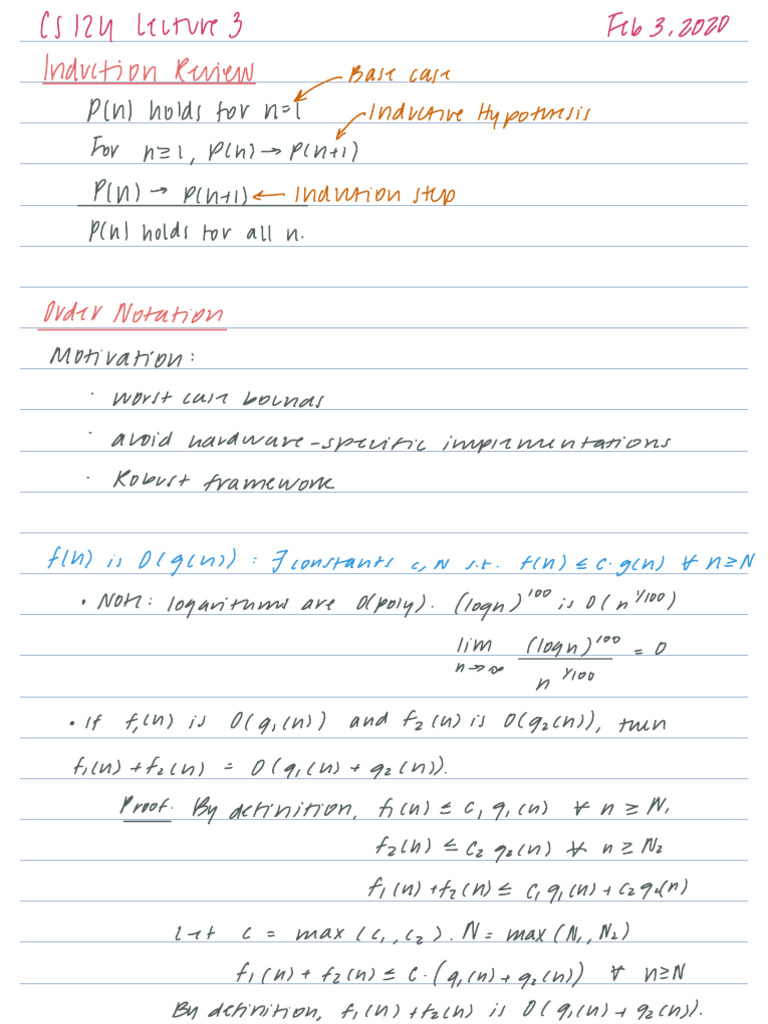 CS 124 Lecture 3 Feb 3, 2020
Induction Review Base case
P(n) holds for n=1 Inductive Hypothesis
For n≥1, P(n) → P(n+1)
P(n) → P(n+1) ← Induction step
P(n) holds for all n.
Order Notation
Motivation:
· worst case bounds
· avoid hardware-specific implementations
· Robust framework
f(n) is O(g(n)) : ∃ constants c, N s.t. f(n) ≤ c·g(n) ∀ n≥N
• Note: logarithms are O(poly). (log n)^100 is O(n^1/100)
lim n→∞ (log n)^100 / n^1/100 = 0
• If f₁(n) is O(g₁(n)) and f₂(n) is O(g₂(n)), then
f₁(n) + f₂(n) = O(g₁(n) + g₂(n)).
Proof. By definition, f₁(n) ≤ c₁ g₁(n) ∀ n ≥ N₁
f₂(n) ≤ c₂ g₂(n) ∀ n ≥ N₂
f₁(n) + f₂(n) ≤ c₁g₁(n) + c₂g₂(n)
Let c = max(c₁, c₂). N = max(N₁, N₂)
f₁(n) + f₂(n) ≤ c·(g₁(n) + g₂(n)) ∀ n≥N
By definition, f₁(n) + f₂(n) is O(g₁(n) + g₂(n)).